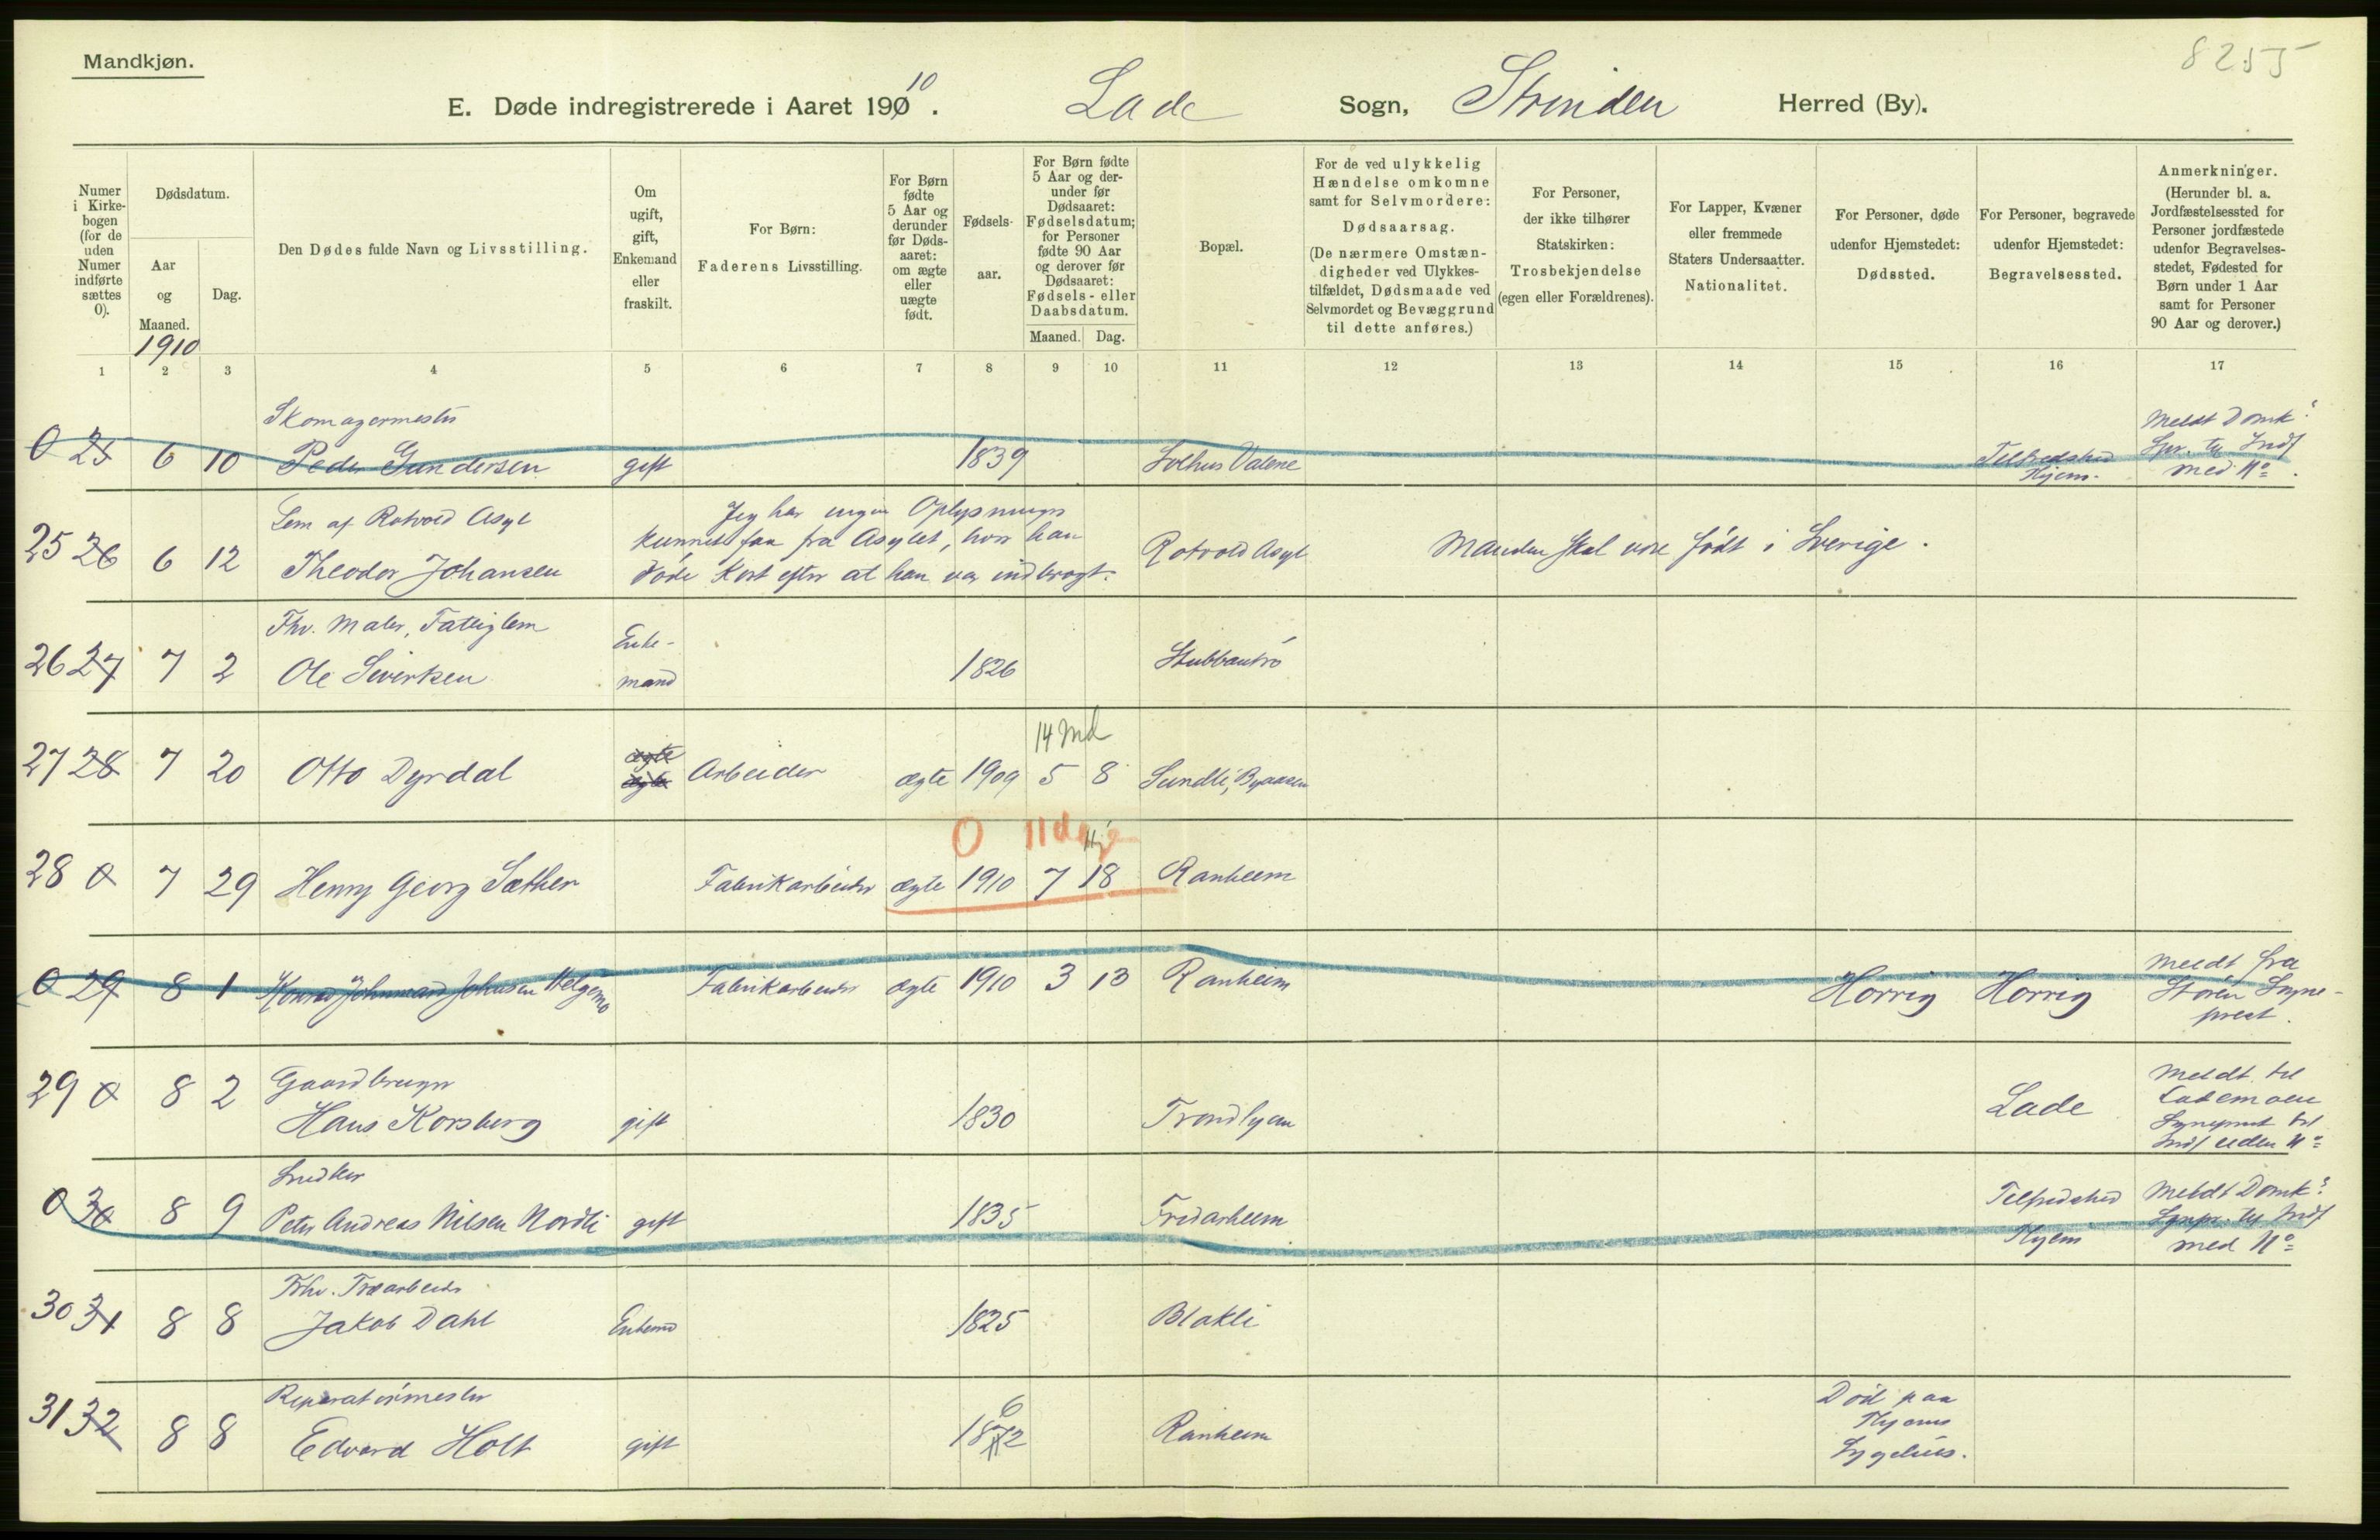 Mandkjøn.
8255
E. Døde indregistrerede i Aaret 1910. Lade Sogn, Strinden Herred (By).
Numer i Kirkebogen (for de uden Numer indførte sættes 0).
Dødsdatum.
Aar og Maaned.
1910
Dag.
Den Dødes fulde Navn og Livsstilling.
Om ugift, gift, Enkemand eller fraskilt.
For Børn: Faderens Livsstilling.
For Børn fødte 5 Aar og derunder før Dødsaaret: om ægte eller uægte født.
Fødselsaar.
For Børn fødte 5 Aar og derunder før Dødsaaret: Fødselsdatum; for Personer fødte 90 Aar og derover før Dødsaaret: Fødsels- eller Daabsdatum.
Maaned. Dag.
Bopæl.
For de ved ulykkelig Hændelse omkomne samt for Selvmordere: Dødsaarsag. (De nærmere Omstændigheder ved Ulykkestilfældet, Dødsmaade ved Selvmordet og Bevæggrund til dette anføres.)
For Personer, der ikke tilhører Statskirken: Trosbekjendelse (egen eller Forældrenes).
For Lapper, Kvæner eller fremmede Staters Undersaatter. Nationalitet.
For Personer, døde udenfor Hjemstedet: Dødssted.
For Personer, begravede udenfor Hjemstedet: Begravelsessted.
Anmerkninger. (Herunder bl. a. Jordfæstelsessted for Personer jordfæstede udenfor Begravelsesstedet, Fødested for Børn under 1 Aar samt for Personer 90 Aar og derover.)
1 2 3 4 5 6 7 8 9 10 11 12 13 14 15 16 17
Skomagermester
0 25 6 10 Peder Gundersen gift 1839 Solhus Valene Tilfredshed Hjem. Meldt Domk. Spr. til Indf med No.
Lem af Rotvold Asyl
Jeg har ingen Oplysninger
kunnet faa fra Asylet, hvor han
25 26 6 12 Theodor Johansen døde kort efter at han var indbragt. Rotvold Asyl Manden skal være født i Sverige.
Fhv. Maler, Fattiglem
26 27 7 2 Ole Sivertsen Enkemand 1826 Stubbantrø
14 Md
27 28 7 20 Otto Dyrdal ægte ægte Arbeider ægte 1909 5 8 Sundli, Byaasen
0 11 dage
28 0 7 29 Henry Georg Sæther Fabrikarbeider ægte 1910 7 18 Ranheim
0 29 8 1 Konrad Johansen Helgemo Fabrikarbeider ægte 1910 3 13 Ranheim Horrig Horrig Meldt fra Støren Sogneprest.
Gaardbruger
29 0 8 2 Hans Korsberg gift 1830 Trondlyen Lade Meldt til Lademoen Sogneprest til Indf uden No
Snedker
0 30 8 9 Peter Andreas Nilsen Nordli gift 1835 Fredarheim Tilfredshed Hjem Meldt Domk. Sognepr. til Indf med No
Fhv. Træarbeider
30 31 8 8 Jakob Dahl Enkemd 1825 Blakli
Reperatørmester
31 32 8 8 Edvard Holt gift 1862 Ranheim Død paa Thjems Sygehus.